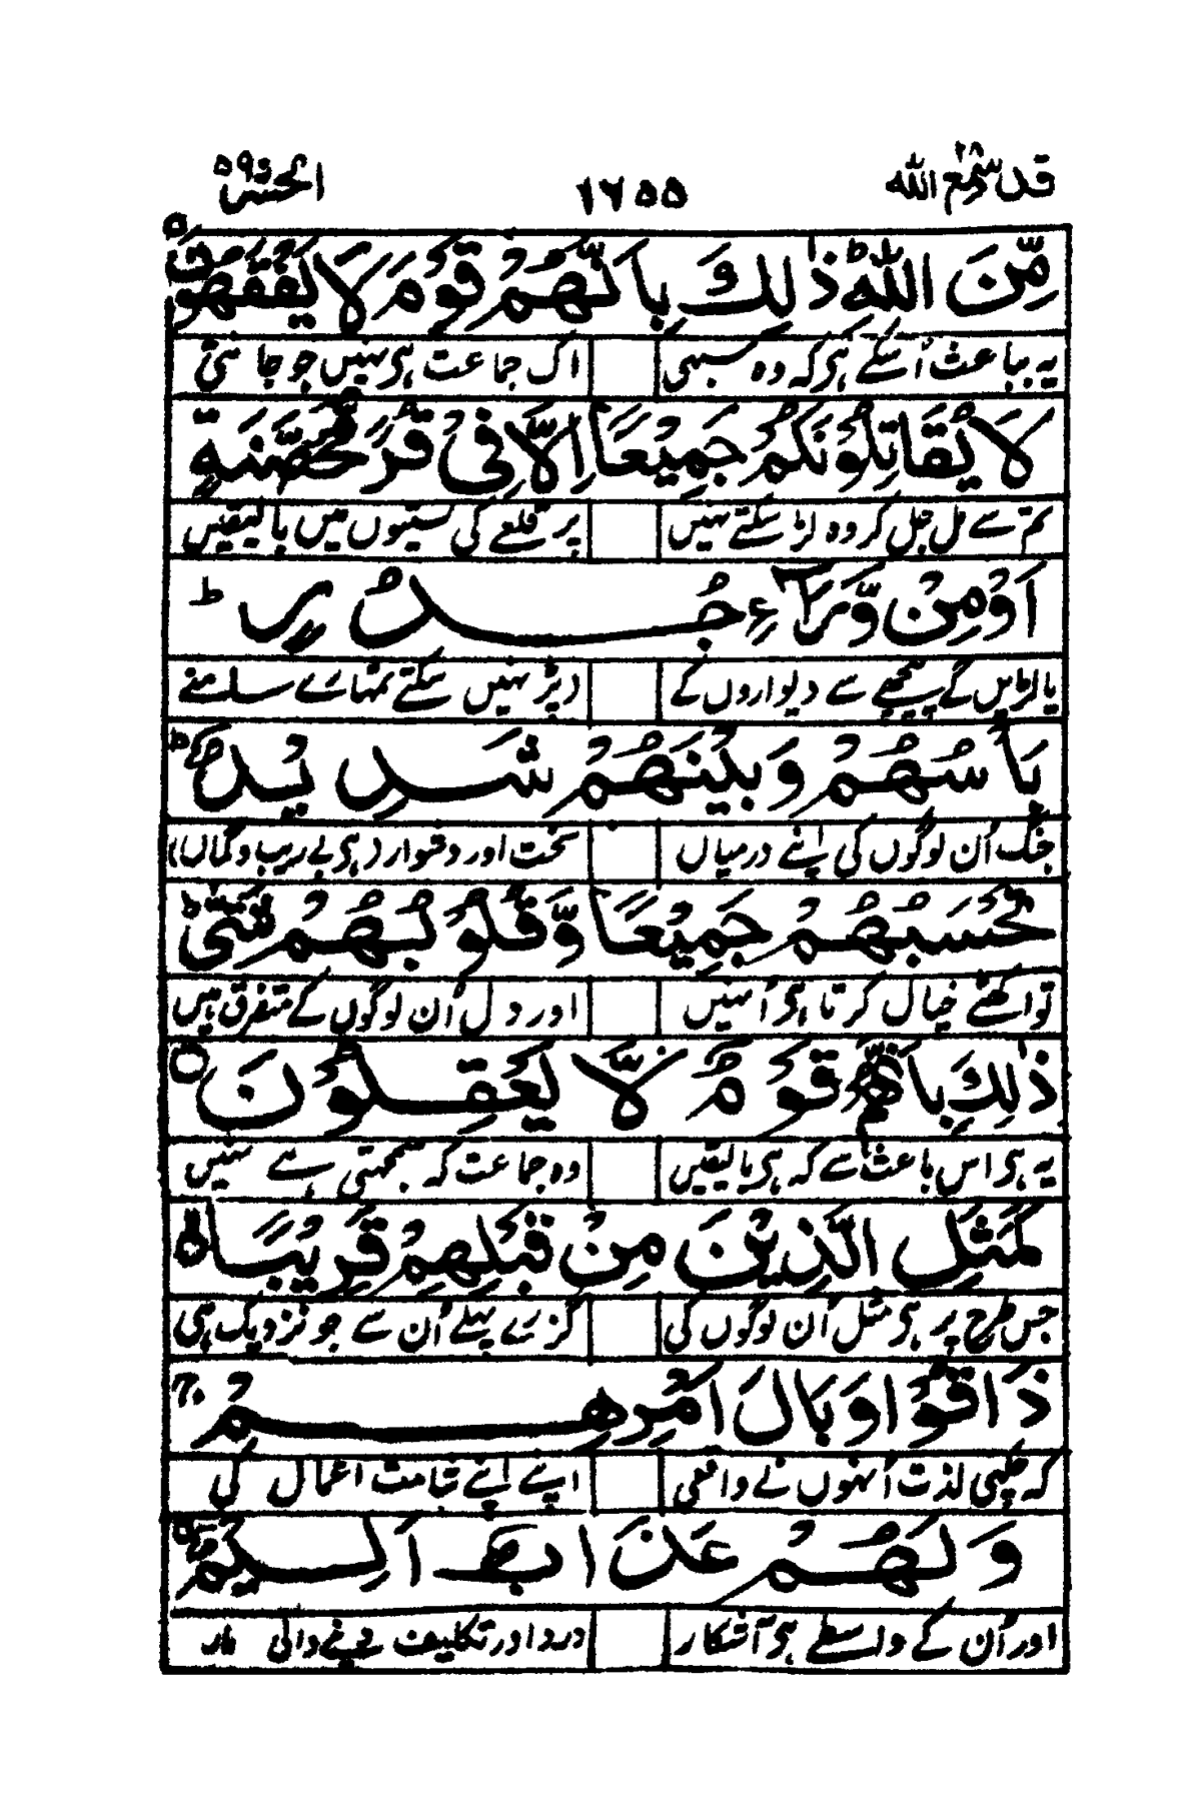 قد سمع الله ۲۸ ۱۶۵۵ الحشر ۵۹
مِّنَ اللّٰهِ ؕ ذٰلِكَ بِاَنَّهُمْ قَوْمٌ لَّا یَفْقَهُوْنَ ۝
یہ بباعث اُسکے ہی کہ وہ سبہی اک جماعت ہی نہیں جو جانتی
لَا یُقَاتِلُوْنَكُمْ جَمِیْعًا اِلَّا فِیْ قُرًی مُّحَصَّنَةٍ
تم سے مل جل کر وہ لڑ سکتے نہیں پر قلعے کی بستیوں میں بالیقیں
اَوْ مِنْ وَّرَآءِ جُدُرٍ ؕ
یا لڑیں گے پیچھے سے دیواروں کے لڑ نہیں سکتے تمہارے سامنے
بَاْسُهُمْ بَیْنَهُمْ شَدِیْدٌ ؕ
جنگ اُن لوگوں کی اپنے درمیاں سخت اور دشوار (ہی بے ریب و گماں)
تَحْسَبُهُمْ جَمِیْعًا وَّ قُلُوْبُهُمْ شَتّٰی ؕ
تو اکھٹے خیال کرتا ہی اُنہیں اور دل اُن لوگوں کے متفرق ہیں
ذٰلِكَ بِاَنَّهُمْ قَوْمٌ لَّا یَعْقِلُوْنَ ۝
یہ ہی اس باعث سے کہ ہی بالیقیں وہ جماعت کہ سمجھتی ہے نہیں
كَمَثَلِ الَّذِیْنَ مِنْ قَبْلِهِمْ قَرِیْبًا
جس طرح پر ہی مثل اُن لوگوں کی گزرے پہلے اُن سے جو نزدیک ہی
ذَاقُوْا وَبَالَ اَمْرِهِمْ ۚ
کہ چکھی لذت اُنہوں نے واقعی اپنے اپنے شامت اعمال کی
وَ لَهُمْ عَذَابٌ اَلِیْمٌ ۝
اور اُن کے واسطے ہی آشکار درد اور تکلیف دینے والی مار